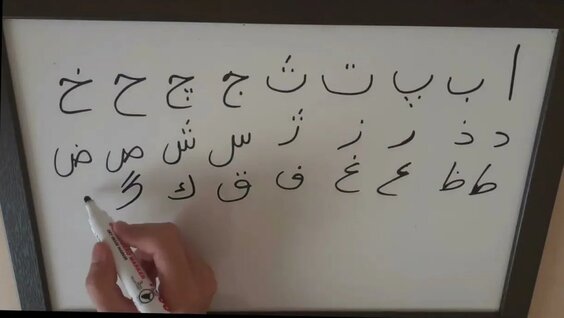 ا ب پ ت ث ج چ ح خ
د ذ ر ز ژ س ش ص ض
ط ظ ع غ ف ق ك گ